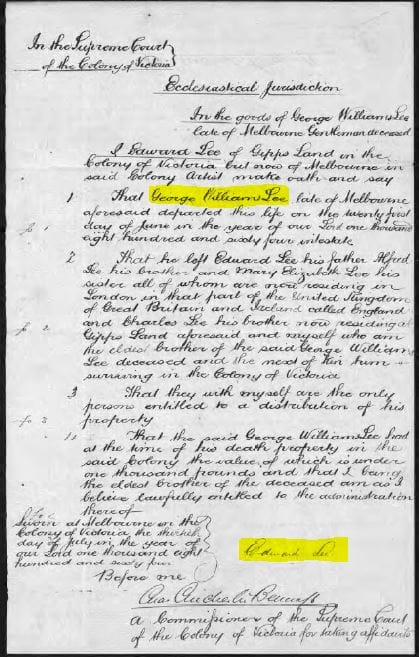 In the Supreme Court
of the Colony of Victoria
Ecclesiastical Jurisdiction
In the goods of George Williams Lee
late of Melbourne Gentleman deceased
I Edward Lee of Gipps Land in the
Colony of Victoria but now of Melbourne in
said Colony Artist make oath and say
1 That George Williams Lee late of Melbourne
aforesaid departed this life on the twenty first
day of June in the year of our Lord one thousand
eight hundred and sixty four intestate
2 That he left Edward Lee his father Alfred
Lee his brother and Mary Elizabeth Lee his
sister all of whom are now residing in
London in that part of the United Kingdom
of Great Britain and Ireland called England
and Charles Lee his brother now residing at
fo 2 Gipps Land aforesaid and myself who am
the eldest brother of the said George Williams
Lee deceased and the next of kin him
surviving in the Colony of Victoria
3 That they with myself are the only
persons entitled to a distribution of his
fo 3 property
That the said George Williams Lee had
at the time of his death property in the
said Colony the value of which is under
one thousand pounds and that I being
the eldest brother of the deceased am as I
believe lawfully entitled to the administration
thereof
Sworn at Melbourne in the
Colony of Victoria the
day of July in the year of
our Lord one thousand eight
hundred and sixty four
Edward Lee
Before me
A Commissioner of the Supreme Court
of the Colony of Victoria for taking affidavits